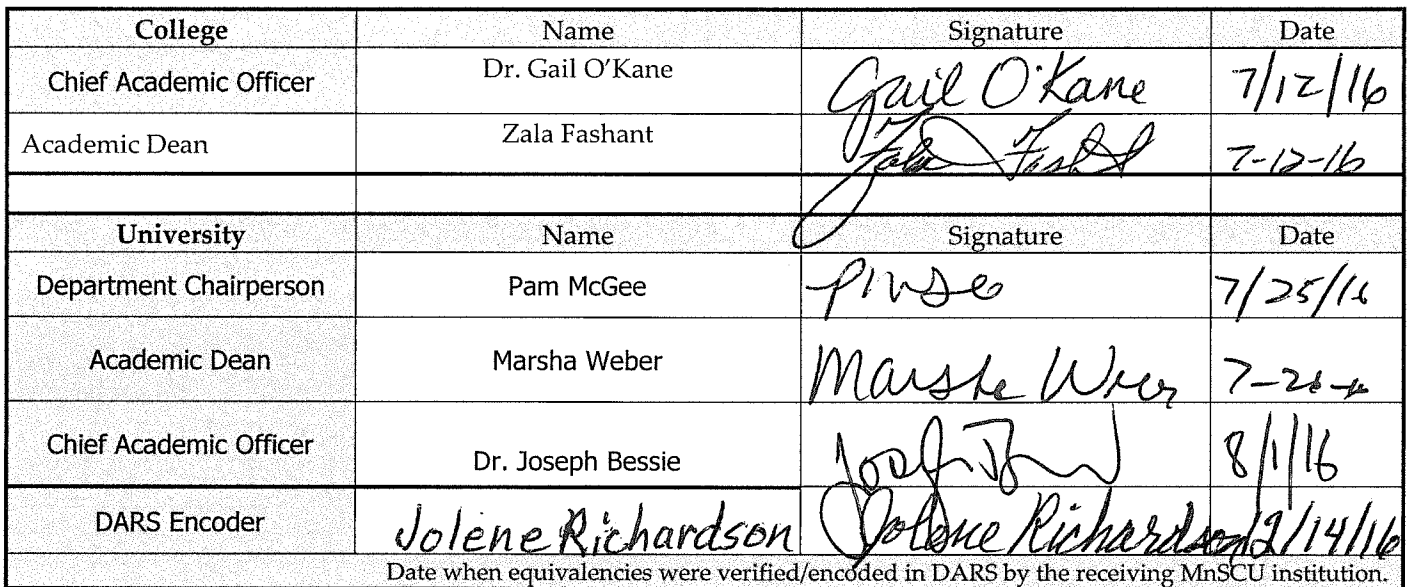 College Name Signature Date
Chief Academic Officer Dr. Gail O'Kane Gail O'Kane 7/12/16
Academic Dean Zala Fashant Zala Fashant 7-12-16
University Name Signature Date
Department Chairperson Pam McGee 7/25/16
Academic Dean Marsha Weber Marsha Weber 7-26-16
Chief Academic Officer Dr. Joseph Bessie 8/1/16
DARS Encoder Jolene Richardson Jolene Richardson 12/14/16
Date when equivalencies were verified/encoded in DARS by the receiving MnSCU institution.